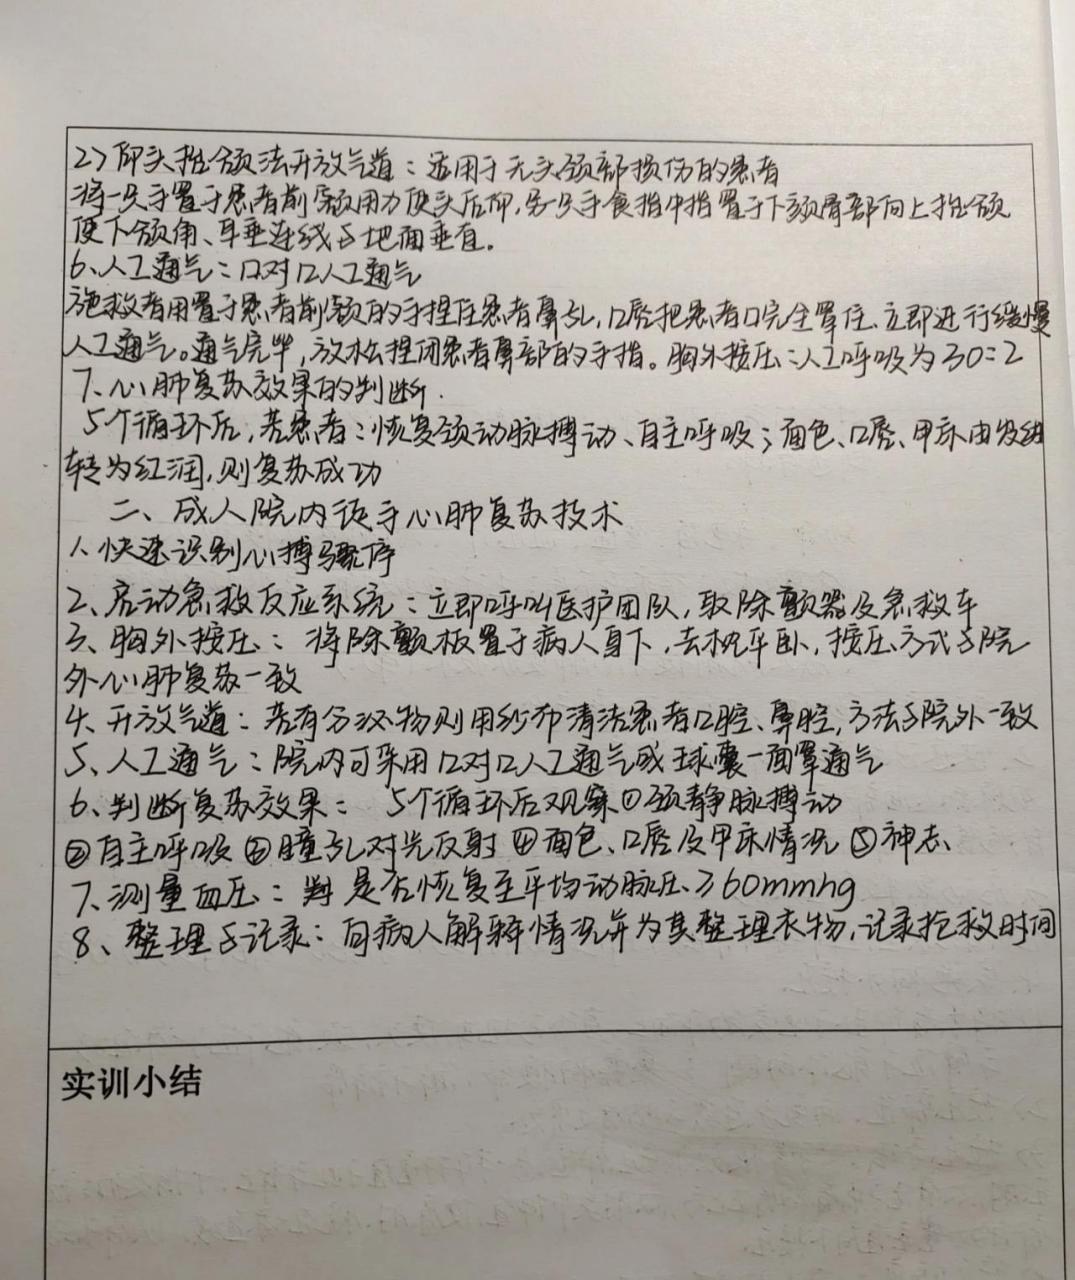 2>仰头抬颏法开放气道：适用于无头颈部损伤的患者
将一只手置于患者前额用力使头后仰，另一只手食指中指置于下颏骨部向上抬颏
使下颌角、耳垂连线与地面垂直。
6、人工通气：口对口人工通气
施救者用置于患者前额的手捏住患者鼻孔，口唇把患者口完全罩住、立即进行缓慢
人工通气。通气完毕，放松捏闭患者鼻部的手指。胸外按压：人工呼吸为30：2
7、心肺复苏效果的判断.
5个循环后，若患者：恢复颈动脉搏动、自主呼吸；面色、口唇、甲床由发绀
转为红润，则复苏成功
二、成人院内徒手心肺复苏技术
1、快速识别心搏骤停
2、启动急救反应系统：立即呼叫医护团队，取除颤器及急救车
3、胸外按压：将除颤板置于病人身下，去枕平卧，按压方式与院
外心肺复苏一致
4、开放气道：若有分泌物则用纱布清洁患者口腔、鼻腔，方法与院外一致
5、人工通气：院内可采用口对口人工通气或球囊一面罩通气
6、判断复苏效果： 5个循环后观察①颈静脉搏动
②自主呼吸③瞳孔对光反射④面色、口唇及甲床情况⑤神志
7、测量血压：判 是否恢复至平均动脉压≥60mmhg
8、整理与记录：向病人解释情况并为其整理衣物，记录抢救时间
实训小结